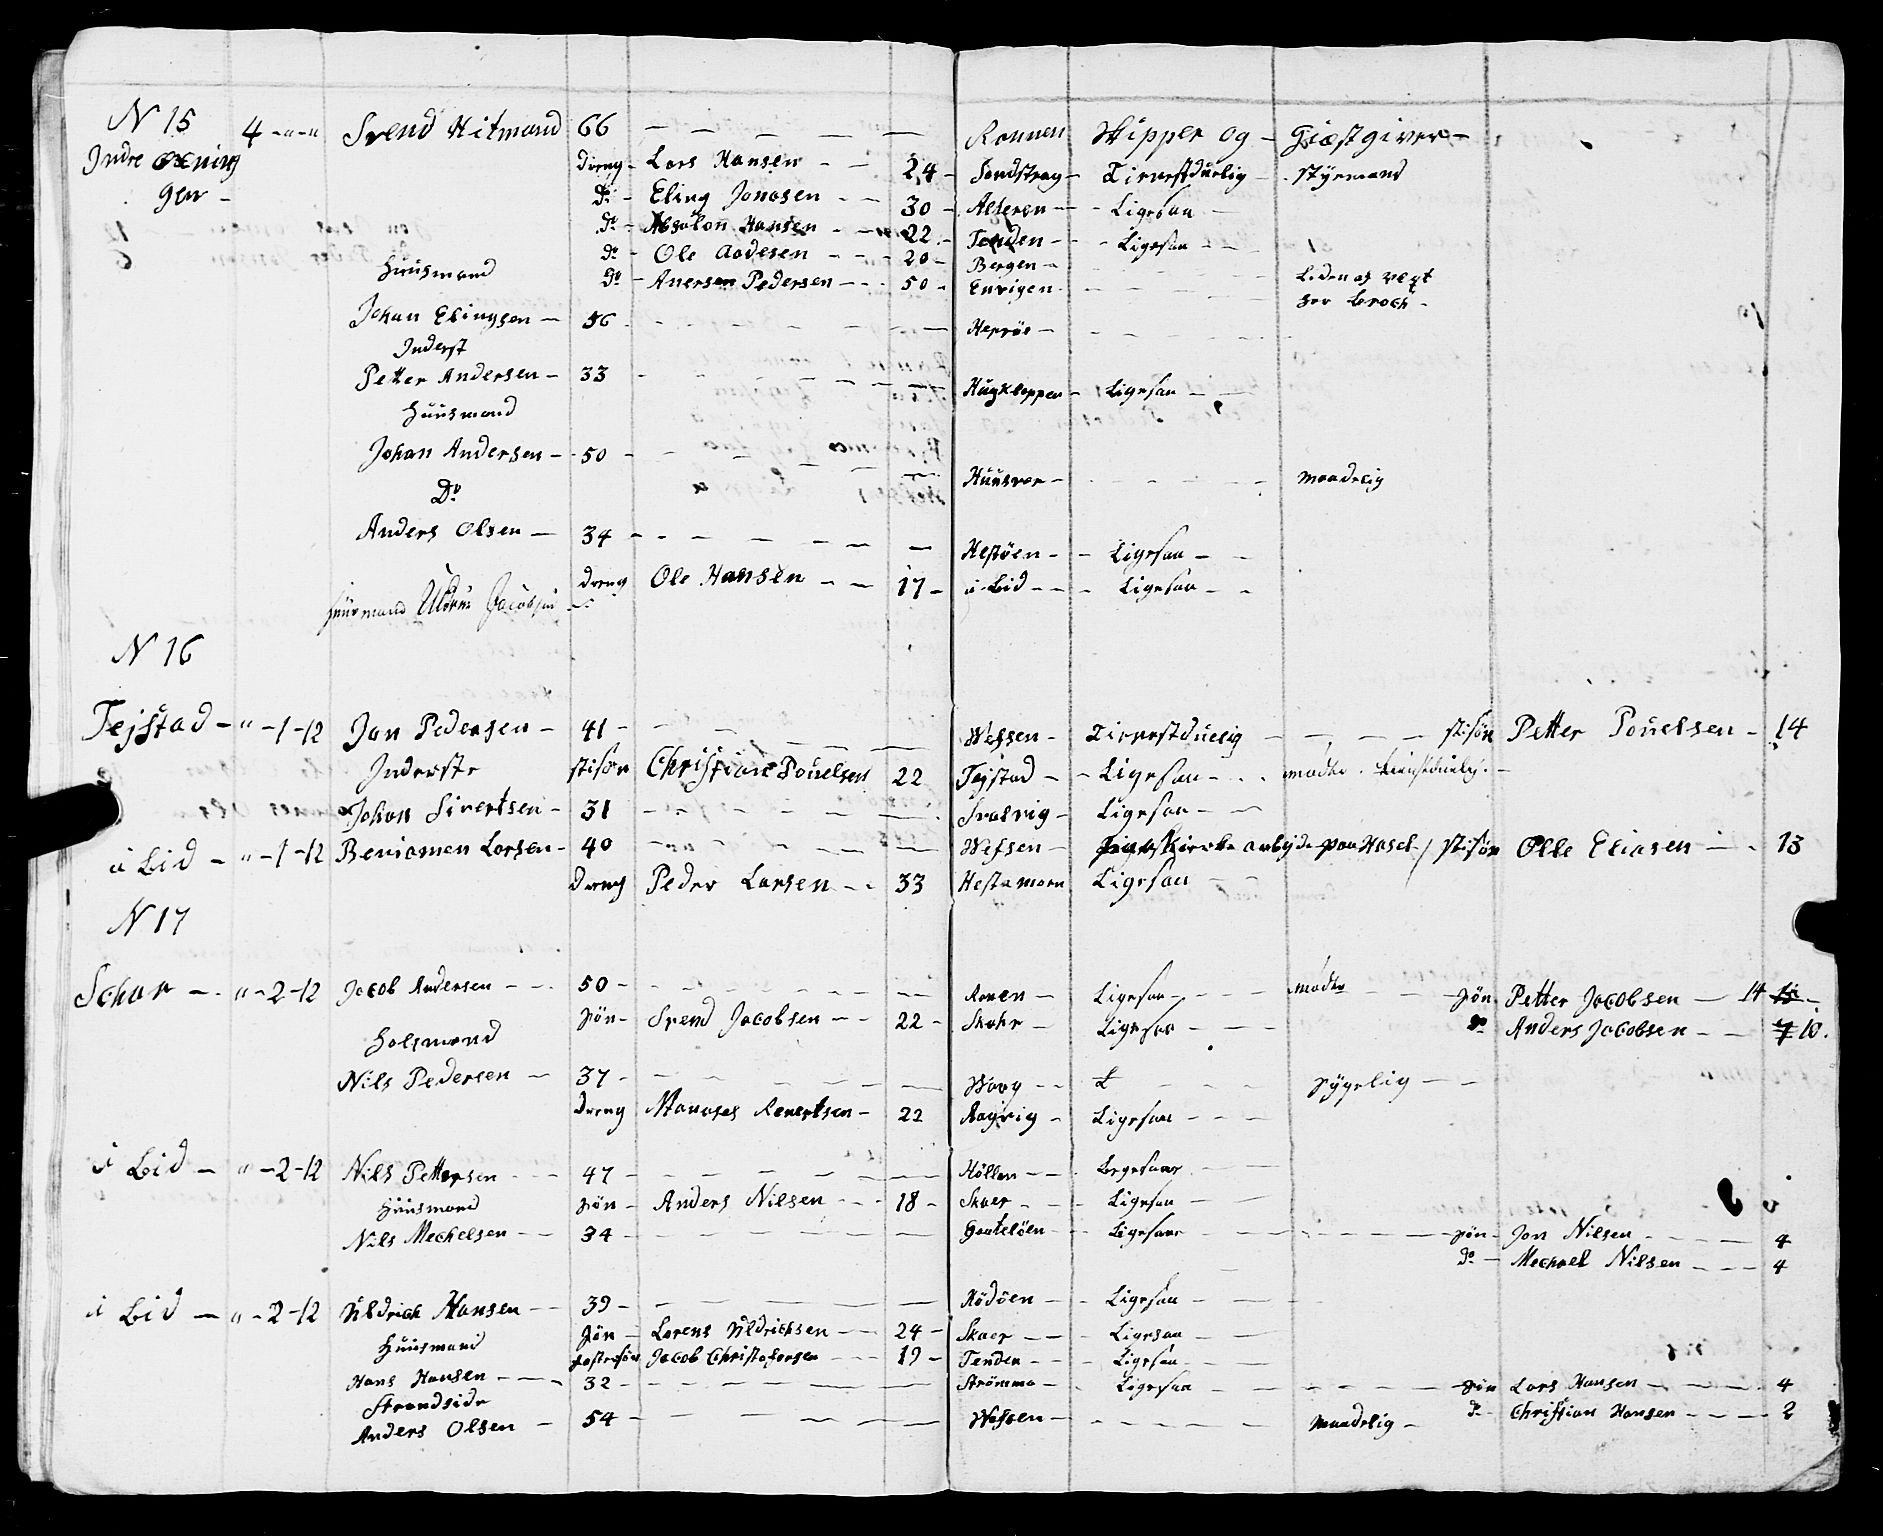 N 15 4 - " - " Svend Hitmand 66 — — — — — Ronnen Skipper og - Giæstgiver -
Indre Øxning Dreng - Lars Hansen - - 24 - Sandstrag - Tienestduelig - styrmand
gen - Do - Eling Jonasen - - 30 - Alteren - - Ligesaa -
Do - Absolon Hansen - - 22 - Tenden - - Ligesaa - -
Do - Ole Andesen - - - 20 - Bergen -
Huusmand Do - Anersen Pedersen - - - 50 - Envigen - Liden af vext
har broch -
Johan Elingsen - 56 - - - - - Herøe -
Inderst
Petter Andersen - 33 - - - - - Hugkleppen - Ligesaa - -
Huusmand
Johan Andersen - 50 - - - - - Huusvær - - - - - maadelig
Do
Anders Olsen - 34 - - - - - Hestøen - - Ligesaa - -
Dreng Ole Hansen - - 17 - i Bid - - - Ligesaa - -
Huusmand Jacobsen
N 16
Tejstad - " - 1 - 12 Jan Pedersen - 41 - - - - - Wefsen - Tienestduelig - - - stisøn Petter Pouelsen - 14
Inderste stisøn Christian Pouelsen 22 Tejstad - - Ligesaa - - -
Johan Sivertsen - 31 - - - - - Svalvig - Ligesaa - -
i Bid - " - 1 - 12 Beniamen Larsen - 40 - - - - - Wefsen - arbejde paa Hasel / stisøn Olle Eliasen - - 13
Dreng Peder Larsen - - 33 Hestemoen Ligesaa - -
N 17
Schar - - " - 2 - 12 Jacob Andersen - - 50 - - - - - Ronen - Ligesaa - - - - søn Petter Jacobsen - 14
søn - Svend Jacobsen - - 22 - Skahr - Ligesaa - - - Do Anders Jacobsen - - 7 10.
Holsmand
Nils Pedersen - 37 - - - - - Waag - - L - - - sygelig - -
Dreng Manases Revertsen - 22 Ragvig - Ligesaa - - -
i Bid - " - 2 - 12 Nils Pettersen - - 47 - - - - - Høllen - - Ligesaae - -
Huusmand søn - Anders Nilsen - - - 18 - Skaer - - - Ligesaa - -
Nils Mechelsen - - 34 - - - - - Gouteløen - - Ligesaae - - - - - søn - Jon Nilsen - - - - 4
Do - Mechael Nilsen - - - 4
i Bid - " - 2 - 12 Uldrich Hansen - - 39 - - - - - Rødøen - - Ligesaa - - -
Huusmand søn - Lorens Uldrichsen - - 24 - Skaer - - - Ligesaa - -
fostersøn Jacob Christofersen - - - 19 - Tenden - - - Ligesaa - - -
Hans Hansen - - - 32 - - - - - Strømmo - - Ligesaa - - - - - søn Lars Hansen - - - - 4
Strandside Do - Christian Hansen - - - - 2
Anders Olsen - 54 - - - - - Wefsen - - - - - maadelig -